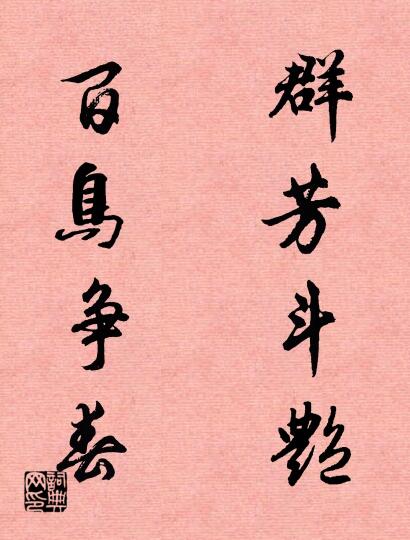 群芳斗艷
百鳥争春
詞典
网印